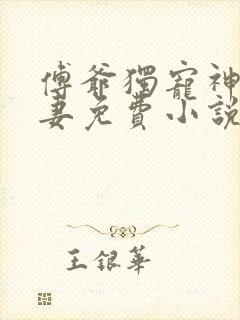 傅爺獨寵神
妻免費小說
王銀華